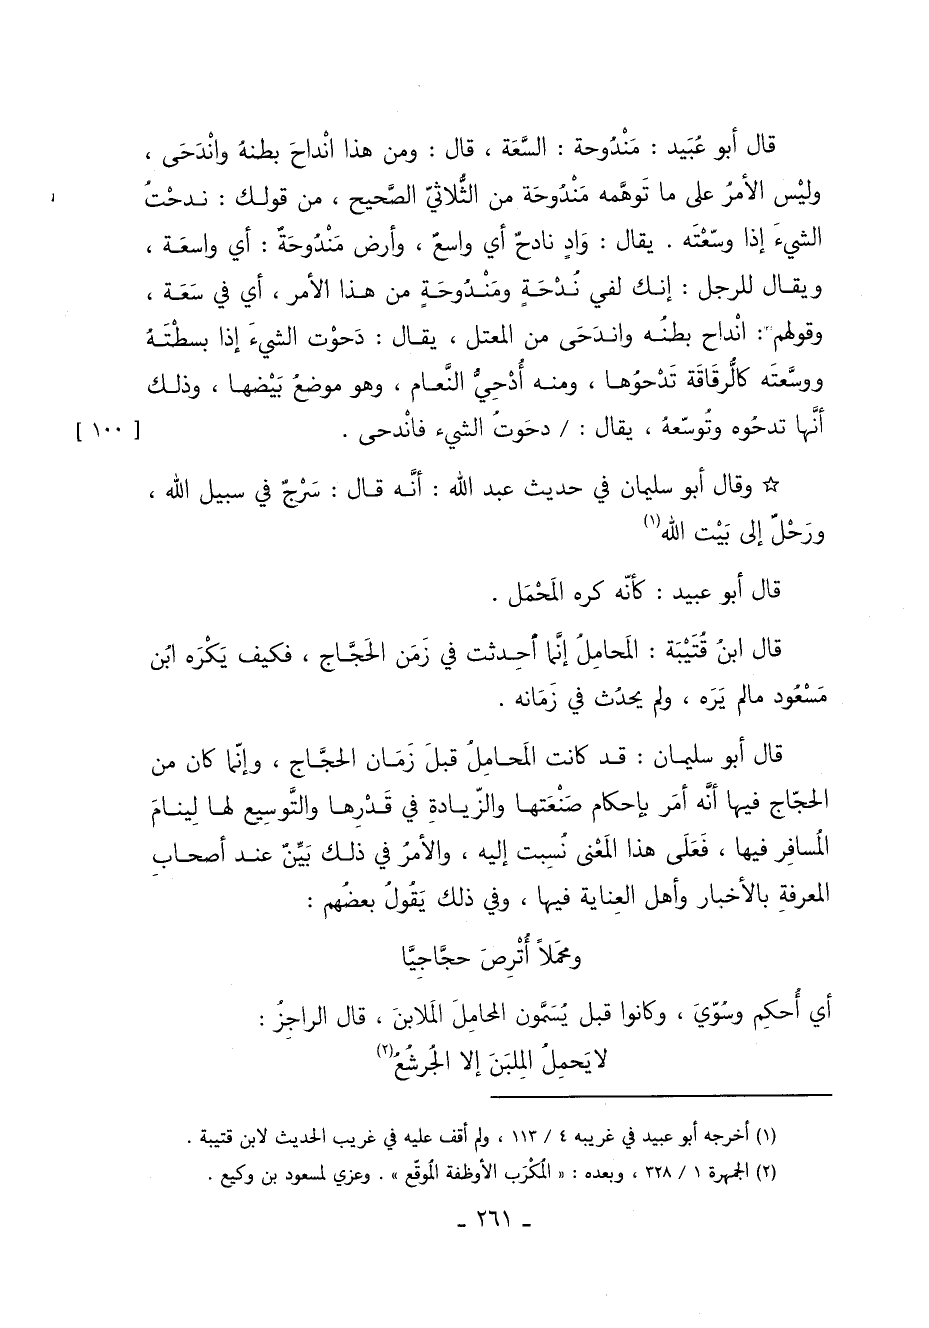 قال أبو عُبَيد : مَنْدُوحة : السَّعَة ، قال : ومن هذا انْداحَ بطنهُ وانْدَحَى ،
وليْس الأمرُ على ما تَوهَّمه مَنْدُوحَة من الثُّلاثيّ الصَّحيح ، من قولك : ندحْتُ
الشيءَ إذا وسّعْتَه . يقال : وَادٍ نادحٌ أي واسعٌ ، وأرض مَنْدُوحَةٌ : أي واسعَة ،
ويقال للرجل : إنك لفي نُدْحَةٍ ومَنْدُوحَةٍ من هذا الأمر ، أي في سَعَة ،
وقولهم : انْداح بطنُه واندَحَى من المعتل ، يقال : دَحوْت الشيءَ إذا بسطْتَهُ
ووسَّعتَه كالرُّقَاقَة تَدْحوُها ، ومنه أُدْحِيُّ النَّعام ، وهو موضعُ بَيْضها ، وذلك
أنَّها تدحُوه وتُوسّعهُ ، يقال : / دحَوتُ الشيء فانْدحى . [ ١٠٠ ]
☆ وقال أبو سليمان في حديث عبد الله : أنَّه قال : سَرْجٌ في سبيل الله ،
ورَحْلٌ إلى بَيْت الله(١)
قال أبو عبيد : كأنّه كره المَحْمَل .
قال ابنُ قُتَيْبَة : المَحامِلُ إنَّما أُحِدثت في زَمَن الحَجَّاج ، فكيف يَكْرَه ابْن
مَسْعُود مالم يَرَه ، ولم يحدُث في زَمَانه .
قال أبو سليمان : قد كانت المَحامِلُ قبلَ زَمَان الحجَّاج ، وإنّما كان من
الحجّاج فيها أنَّه أمَر بإحكام صَنْعَتها والزّيادةِ في قَدْرها والتَّوسِيع لها لِينامَ
المُسافِر فيها ، فَعَلَى هذا المَعْنى نُسِبت إليه ، والأمرُ في ذلك بَيِّنٌ عند أصحابِ
المعرفةِ بالأخبار وأهل العِناية فيها ، وفي ذلك يَقُولُ بعضُهم :
ومحمَلاً أُتْرِصَ حجَّاجيًّا
أي أُحكِم وسُوّيَ ، وكانوا قبل يُسَمُّون المحامِلَ المَلابنَ ، قال الراجِزُ :
لا يَحمِلُ المِلبَنَ إلا الجُرشُعُ(٢)
(١) أخرجه أبو عبيد في غريبه ٤ / ١١٣ ، ولم أقف عليه في غريب الحديث لابن قتيبة .
(٢) الجمهرة ١ / ٣٢٨ ، وبعده : « المُكْرَب الأوظفة المُوقّع » . وعزي لمسعود بن وكيع .
ـ ٢٦١ ـ